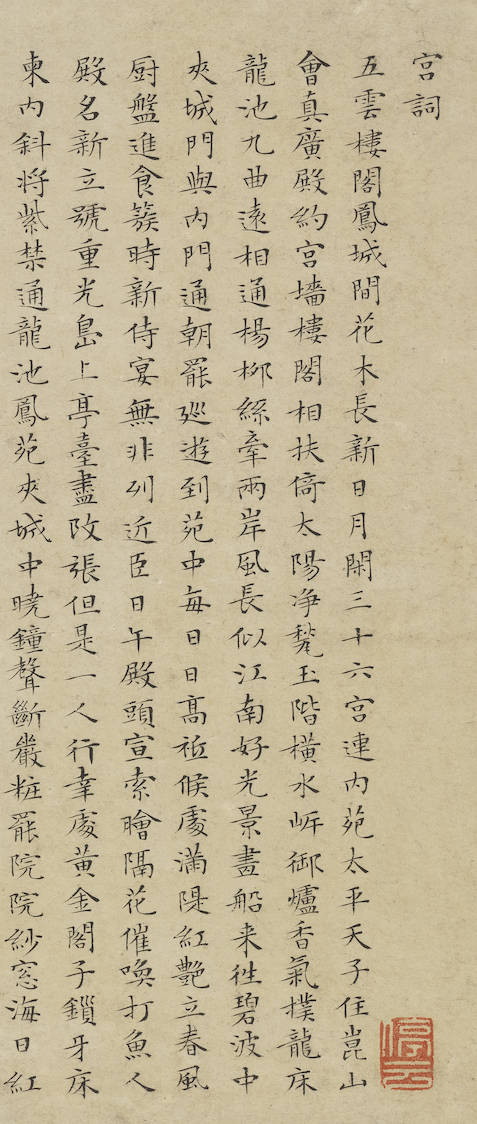 宮詞
五雲樓閣鳳城間花木長新日月閑三十六宮連内苑太平天子住崑山
會真廣殿約宮墻樓閣相扶倚太陽净甃玉階横水岸御爐香氣撲龍床
龍池九曲遠相通楊柳絲牽兩岸風長似江南好光景畫船来往碧波中
夾城門與内門通朝罷巡遊到苑中每日日髙祗候處滿隄紅艷立春風
厨盤進食簇時新侍宴無非列近臣日午殿頭宣索鱠隔花催喚打魚人
殿名新立號重光島上亭臺盡改張但是一人行幸處黃金閣子鎖牙床
東内斜將紫禁通龍池鳳苑夾城中曉鐘聲斷嚴粧罷院院紗窓海日紅